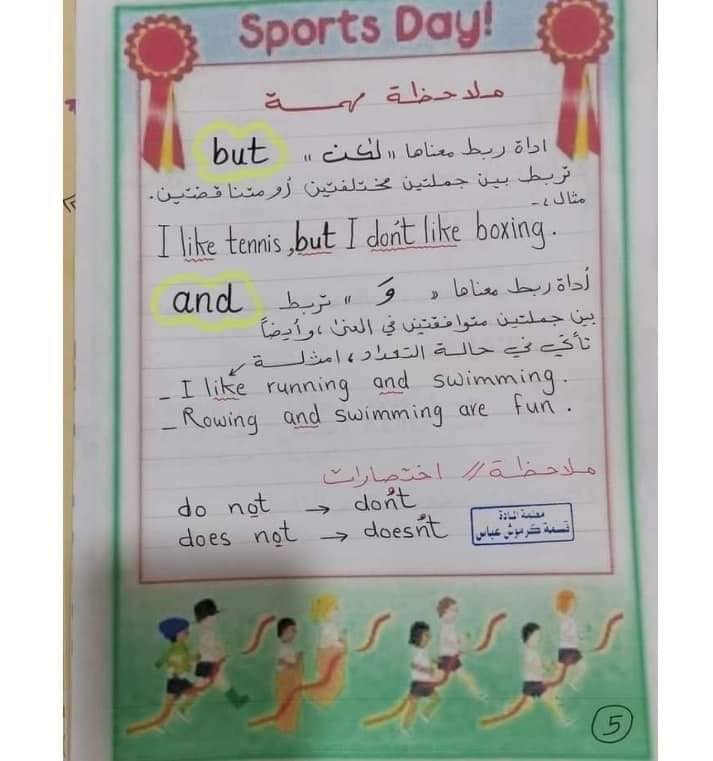 Sports Day!
ملاحظة مهمة
but اداة ربط معناها "لكن"
تربط بين جملتين مختلفتين أو متناقضتين.
مثال :-
I like tennis ,but I don't like boxing.
and أداة ربط معناها "وَ" تربط
بين جملتين متوافقتين في المعنى ،وأيضاً
تأتي في حالة التعداد ، امثلة
- I like running and swimming.
- Rowing and swimming are fun.
ملاحظة // اختصارات
do not → don't
does not → doesn't
معلمة المادة
قسمة كرموش عباس
5